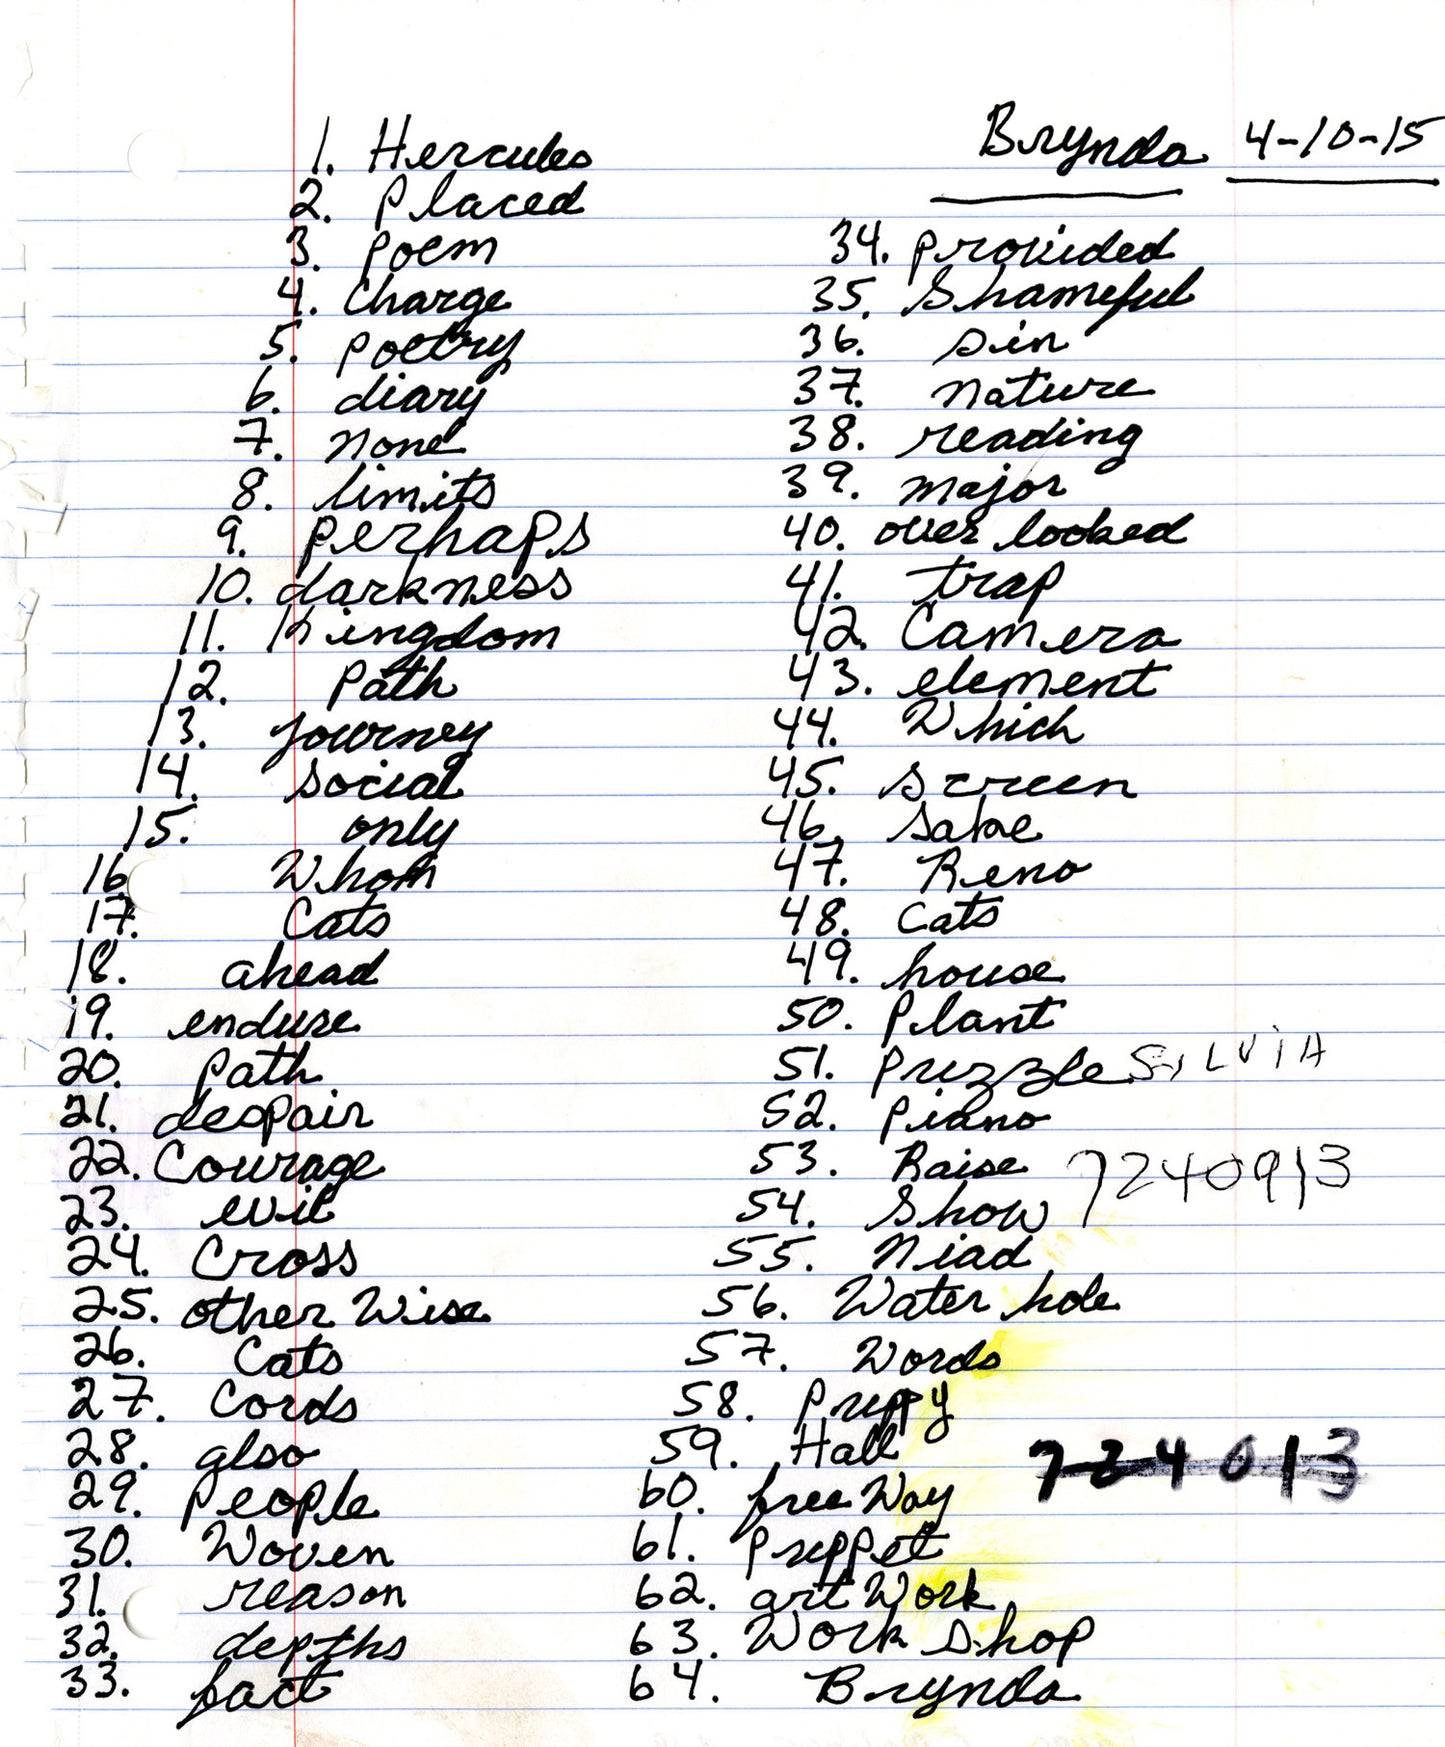 Brynda 4-10-15
1. Hercules
2. Placed
3. Poem
4. Charge
5. Poetry
6. diary
7. None
8. limits
9. Perhaps
10. darkness
11. Kingdom
12. Path
13. journey
14. social
15. only
16. Whom
17. Cats
18. ahead
19. endure
20. Path
21. despair
22. Courage
23. evil
24. Cross
25. other Wise
26. Cats
27. Cords
28. also
29. People
30. Woven
31. reason
32. depths
33. fact
34. Provided
35. Shameful
36. sin
37. Nature
38. reading
39. major
40. over looked
41. trap
42. Camera
43. element
44. Which
45. Screen
46. Sake
47. Reno
48. Cats
49. house
50. Plant
51. Puzzle SiLViA
52. Piano
53. Raise 7240913
54. Show
55. Niad
56. Water hole
57. Words
58. Puppy
59. Hall 724013
60. free Way
61. Puppet
62. art Work
63. Work Shop
64. Brynda